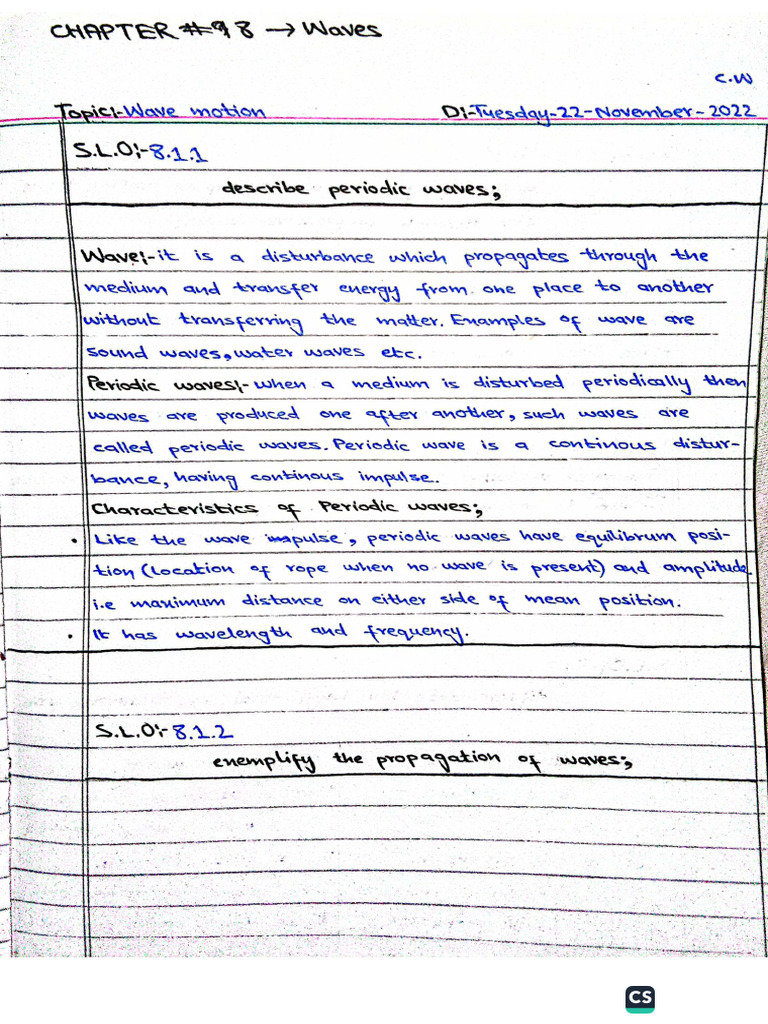 CHAPTER # 8 → Waves
C.W
Topic:- Wave motion D:- Tuesday-22-November-2022
S.L.O:- 8.1.1
describe periodic waves;
Wave:- it is a disturbance which propagates through the
medium and transfer energy from one place to another
without transferring the matter. Examples of wave are
sound waves, water waves etc.
Periodic waves:- when a medium is disturbed periodically then
waves are produced one after another, such waves are
called periodic waves. Periodic wave is a continous distur-
bance, having continous impulse.
Characteristics of Periodic waves;
• Like the wave pulse, periodic waves have equilibrum posi-
tion (location of rope when no wave is present) and amplitude
i.e maximum distance on either side of mean position.
• It has wavelength and frequency.
S.L.O:- 8.1.2
exemplify the propagation of waves;
CS